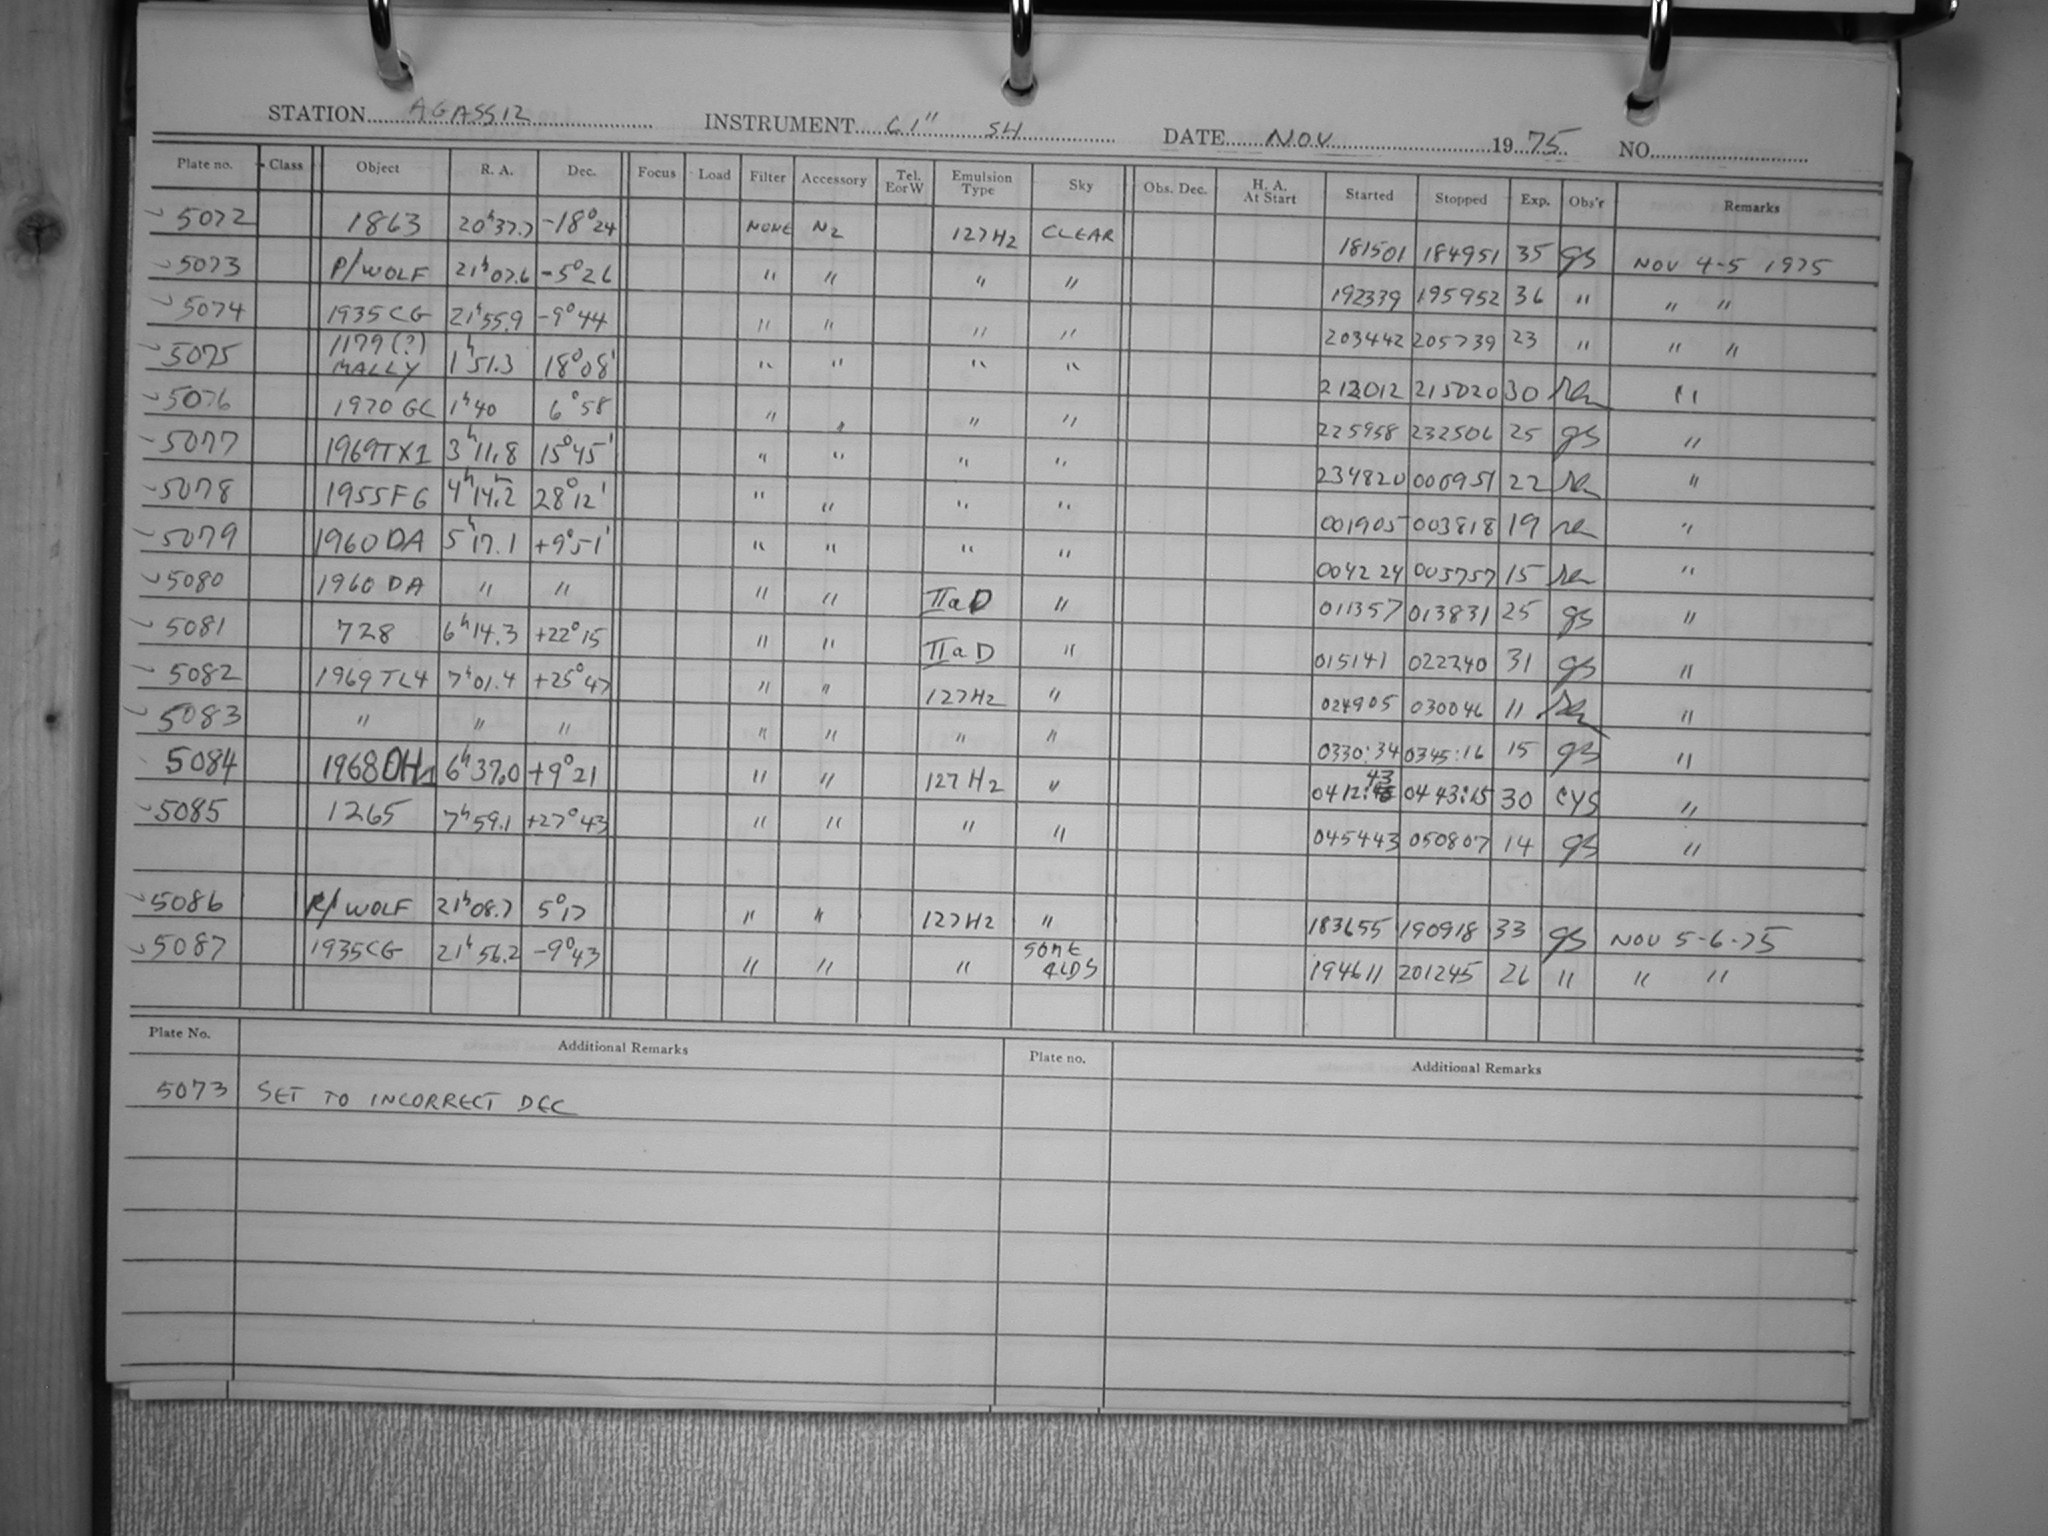 STATION AGASSIZ INSTRUMENT 61" SH DATE NOV 1975 NO.
Plate no. Class Object R. A. Dec. Focus Load Filter Accessory Tel. E or W Emulsion Type Sky Obs. Dec. H. A. At Start Started Stopped Exp. Obs'r Remarks
5072 1863 20h37.7 -18°24 NONE N2 127H2 CLEAR 181501 184951 35 gs NOV 4-5 1975
5073 P/WOLF 21h07.6 -5°26 " " " " 192339 195952 36 " " "
5074 1935CG 21h55.9 -9°44 " " " " 203442 205739 23 " " "
5075 1179(?) MALLY 1h51.3 18°08' " " " " 212012 215020 30 "
5076 1970 GC 1h40 6°58 " " " " 225958 232506 25 gs "
5077 1969TX1 3h11.8 15°45' " " " " 234820 22 "
5078 1955FG 4h14.2 28°12' " " " " 001905 003818 19 "
5079 1960 DA 5h17.1 +9°51' " " " " 004224 005757 15 "
5080 1960 DA " " " " IIaD " 011357 013831 25 gs "
5081 728 6h14.3 +22°15 " " IIaD " 015141 022240 31 gs "
5082 1969 TL4 7h01.4 +25°47 " " 127H2 " 024905 030046 11 "
5083 " " " " " " " 0330:34 0345:16 15 gs "
5084 1968OH1 6h37.0 +9°21 " " 127H2 " 0412:43 0443:15 30 CYS "
5085 1265 7h59.1 +27°43 " " " " 045443 050807 14 gs "
5086 P/WOLF 21h08.7 5°17 " " 127H2 " 183655 190918 33 gs NOV 5-6-75
5087 1935CG 21h56.2 -9°43 " " " SOME CLDS 194611 201245 26 " " "
Plate No. Additional Remarks Plate no. Additional Remarks
5073 SET TO INCORRECT DEC